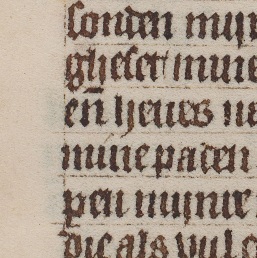 sonden mijn
gheset mine
en̄ heues
mine paden
pen mijnre
die als vul